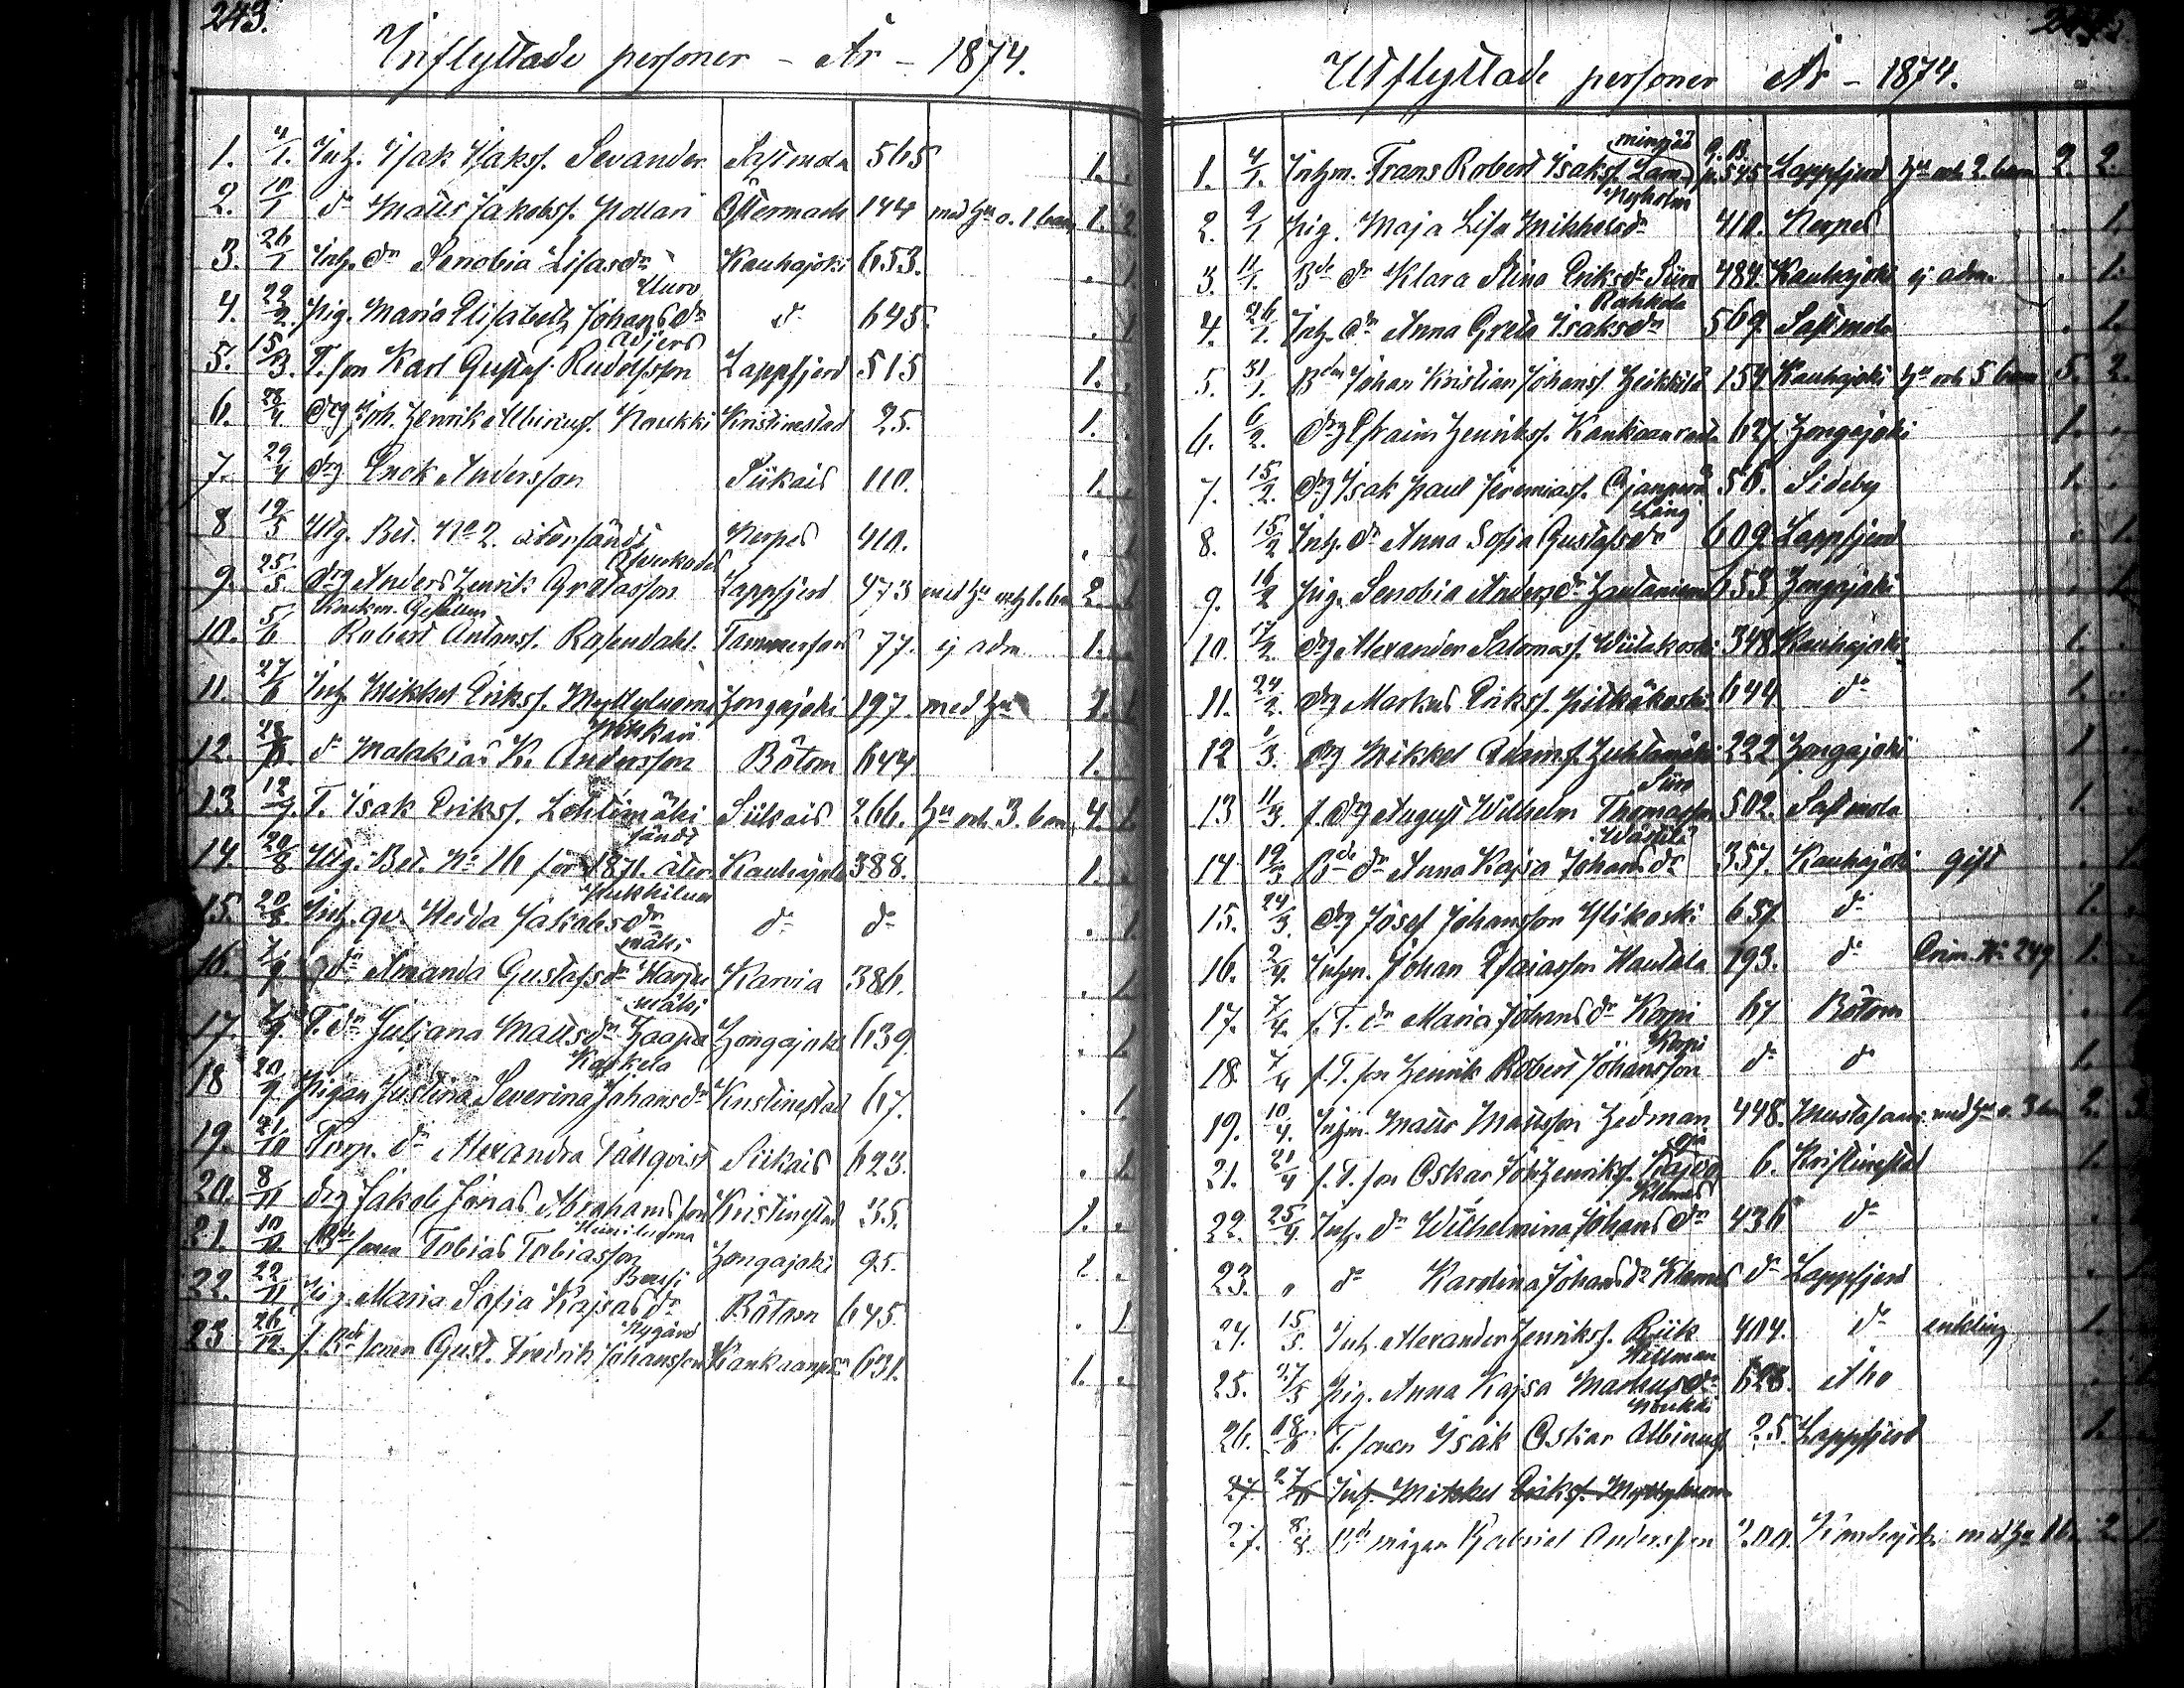 243.
Inflyttade personer - År - 1874.
1. 4/1. Inh. Isak Isakss. Sevander Sastmola 565 1. .
2. 10/1 dn Matts Jakobss. Pollari Östermark 144 med hu o. 1 barn 1. 2.
3. 26/1 Inh. dn Senobia Lisasdr Kauhajoki 653. . 1.
Muro
4. 22/2. Pig. Maria Elisabeth Johansdr dn 645. . 1
Adjers
5. 15/3. T. son Karl Gustaf Rudolfsson Lappfjerd 515 1. .
6. 28/4. Drg Joh. Henrik Albinuss. Koukki Kristinestad 25. 1. .
7. 29/4 Drg Enok Andersson Siikais 110. 1. .
8 19/5 Utg. Bet. No 2. återsändt Nerpes 410. . 1
9. 25/5. Drg Anders Henrik Gretasson Lappfjerd 473 2.
10. 5/6 Robert Antonss. Rosendahl. Tammerfors 77. ej adm. 1. .
11. 27/6 Inh. Mikkel Erikss. Myllyluoma Hongajoki 197. med hu 1. 1
12. 28/6. dn Malakias K. Andersson Bötom 644. 1.
13 12/7. T. Isak Erikss. Lehtimäki Siikais 266. hu och 3. barn 4. 1.
sändt
14. 20/8 Utg. Bet. No 16 för 1871. åter Kauhajoki 388. 1. .
15. 20/8. Inh. qv. Hedda Jakobsdr dn dn . 1
mäki
16. 7/9 dn Amanda Gustafsdr Harju Karvia 386. . 1.
mäki
17. 7/9. T. dn Juliana Mattsdr Haapa Hongajoki 639. . 1.
Kaskela
18 20/9. Pigan Justina Severina Johansdr Kristinestad 67. . 1.
19. 21/10 Torp. dn Alexandra Tällqvist Siikais 623. . 1.
20. 8/11 Drg Jakob Jonas Abrahamsson Kristinestad 35. 1. .
21. 10/11. Bde sonen Tobias Tobiasson Hongajoki 95. 1. .
22. 22/11 Pig. Maria Sofia Kajsasdr Bötom 645. . 1
Nygård
23 26/12. f. Bde sonen Gust. Fredrik Johansson Kankaanpää 631. 1. .
Utflyttade personer År - 1874.
1. 4/1. Inhm. Frans Robert Isakss. Lam- p. 545 Lappfjerd hu och 2. barn 2. 2.
Nyholm
2. 9/1 Pig. Maja Lisa Mikkelsdr 410. Nerpes . 1.
3. 11/1. Bde dr Klara Stina Eriksdr Siiro 484. Kauhajoki ej adm. . 1.
Rahkola
4. 26/1. Inh. dn Anna Greta Isaksdr 569. Sastmola . 1.
5. 31/1. Bden Johan Kristian Johanss. Heikkilä 154 Kauhajoki hu och 5 barn 5. 2.
6. 6/2. Drg Efraim Henrikss. Kankaanranta 627. Hongajoki 1. .
7. 15/2. Drg Isak Paul Jeremiass. 56. Sideby 1. .
Lång
8. 15/2 Inh. dr Anna Sofia Gustafsdr 609. Lappfjerd . 1.
9. 16/2 Pig. Senobia Andersdr Hautaniemi 653 Hongajoki . 1.
10. 17/2. Drg Alexander Salomoss. Wiitakoski 348 Kauhajoki 1. .
11. 24/2. Drg Markus Erikss. Pitkäkoski 644 dn 1. .
12 1/3. Drg Mikkel Adamss. Huhtamäki 222 Hongajoki 1 .
Siiro
13 11/3. f. Drg August Wilhelm Thomasson 502. Sastmola 1. .
14 19/3 Bde dr Anna Kajsa Johansdr 357. Kauhajoki gift . 1.
15. 24/3. Drg Josef Johansson Ylikoski 637. dn 1. .
16. 2/4. Inhm. Johan Esaiasson Hautala 193. dn Crim. No 249 1. .
17. 7/4. f. T. dr Maria Johansdr Korpi 67 Bötom . 1
Korpi
18. 7/4 f. T. son Henrik Robert Johansson dn dn 1. .
19. 10/4. Inhm. Matts Mattsson Hedman 448. Mustasaari med hu o. 3 barn 2. 3
21. 21/4 f. T. son Oskar Joh. Henrikss. 6. Kristinestad 1. .
Klemets
22. 25/4. Inh. dr Wilhelmina Johansdr 436 dn . 1
23. " dn Karolina Johansdr Klemets dn Lappfjerd . 1
24. 15/5. Inh. Alexander Henrikss. Riik 404. dn enkling 1. .
Hellman
25. 27/5 Pig. Anna Kajsa Markusdr 628. Åbo . 1
Koukki
26. 18/6 T. sonen Isak Oskar Albinuss. 25. Lappfjerd 1. .
27 27/6 Inh. Mikkel Erikss. Myllyluoma
27. 8/8. Bde mågen Gabriel Andersson 200. Kauhajoki med hu 1 b. 2. 1.